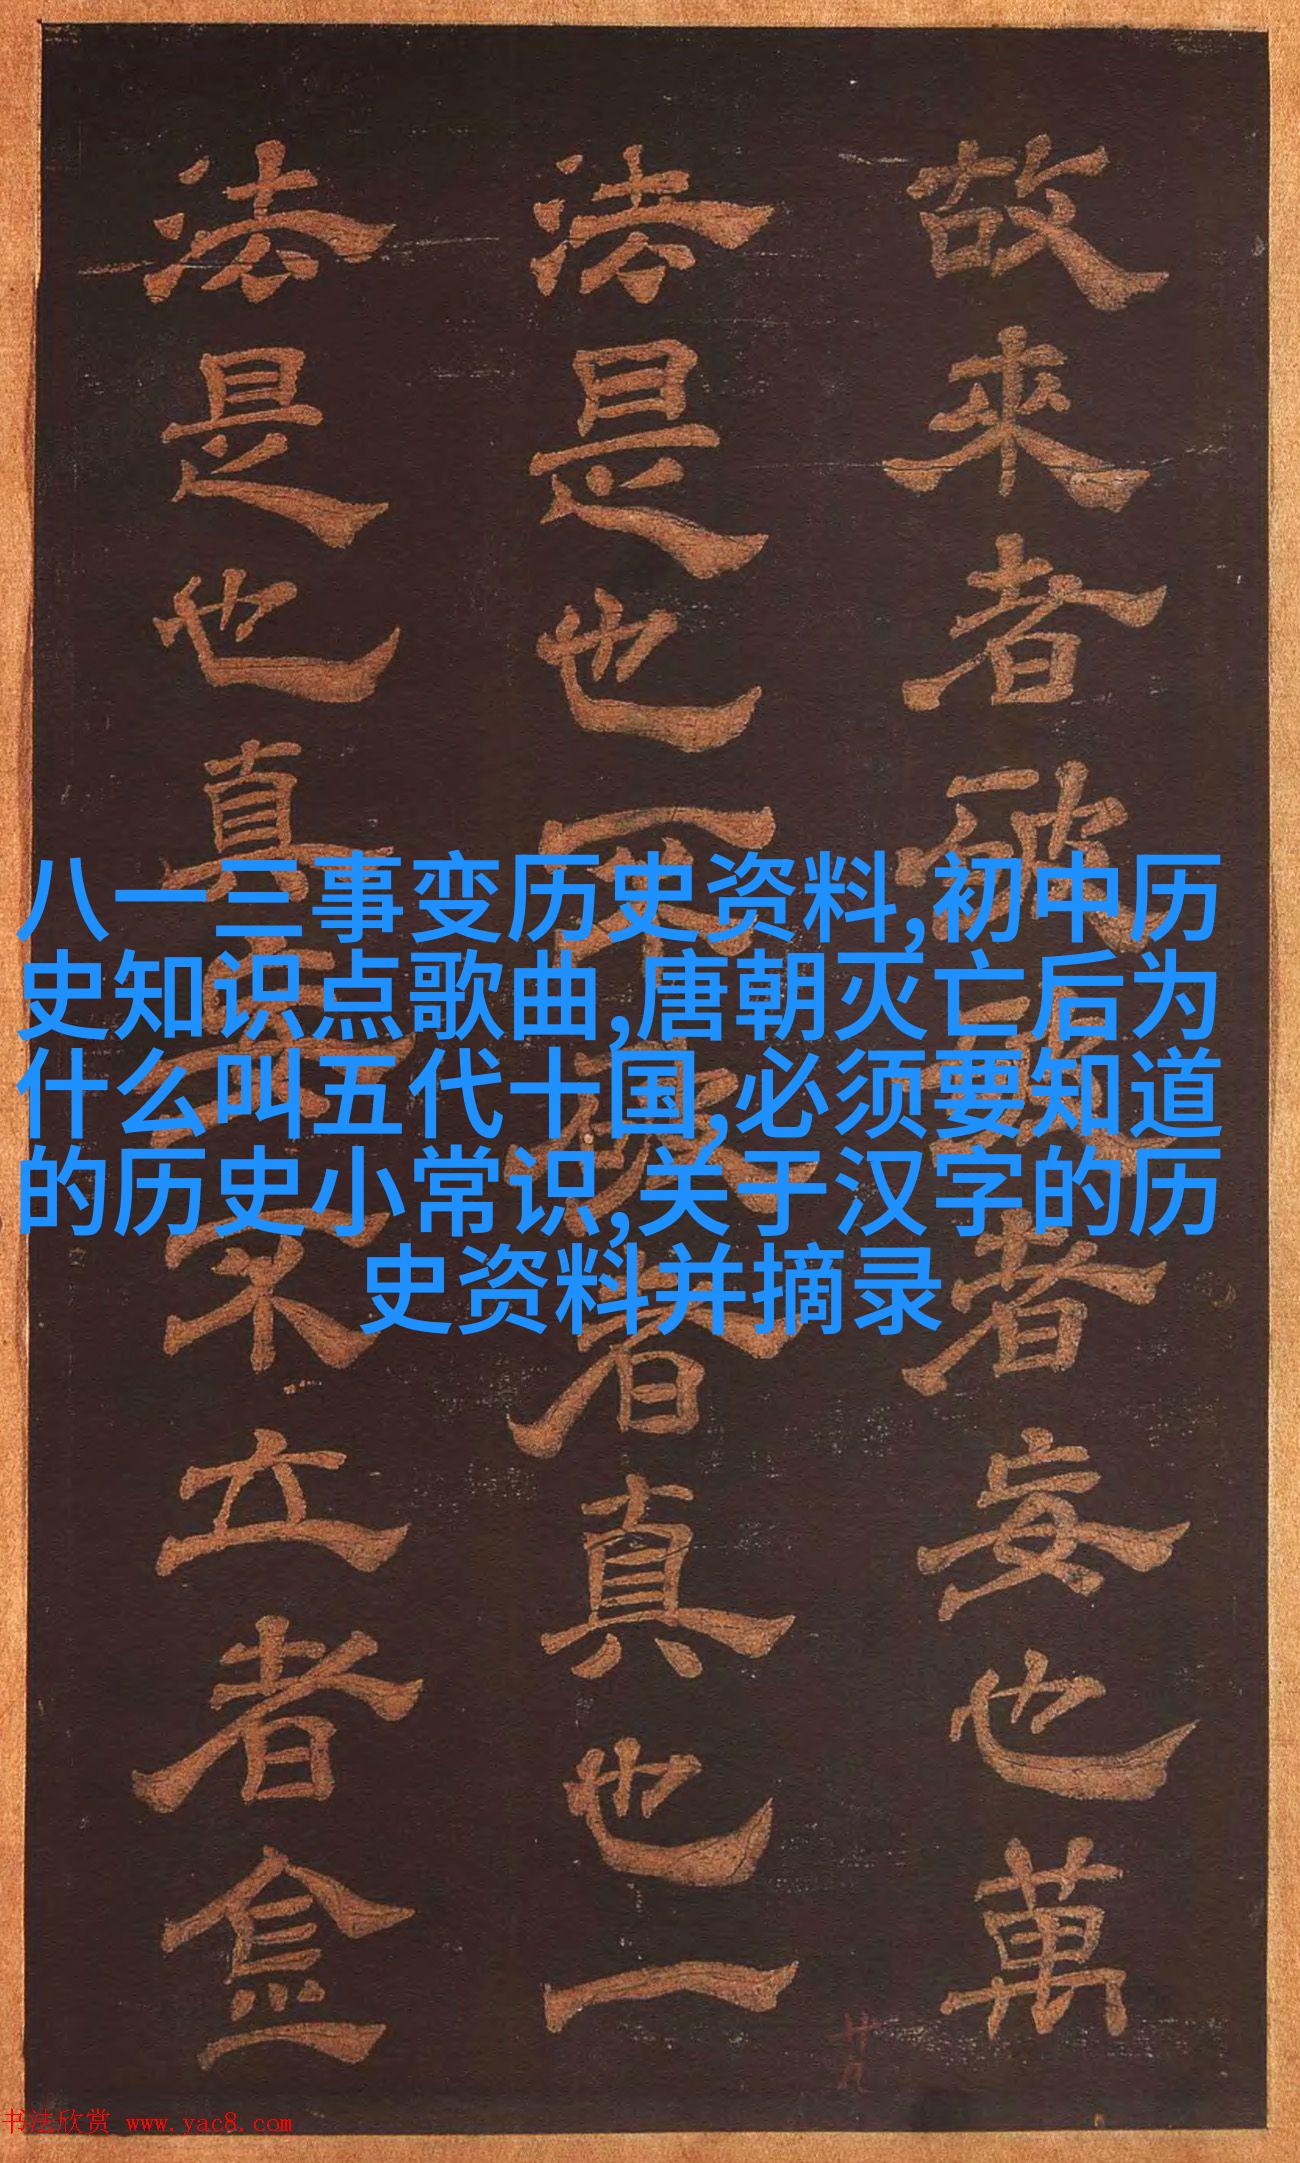 故來者者妄也萬
法是也不者真也一
法是也真不立者
八一三事变历史资料,初中历
史知识点歌曲,唐朝灭亡后为
什么叫五代十国,必须要知道
的历史小常识,关于汉字的历
史资料并摘录
廿九
书法欣赏 www.yac8.com